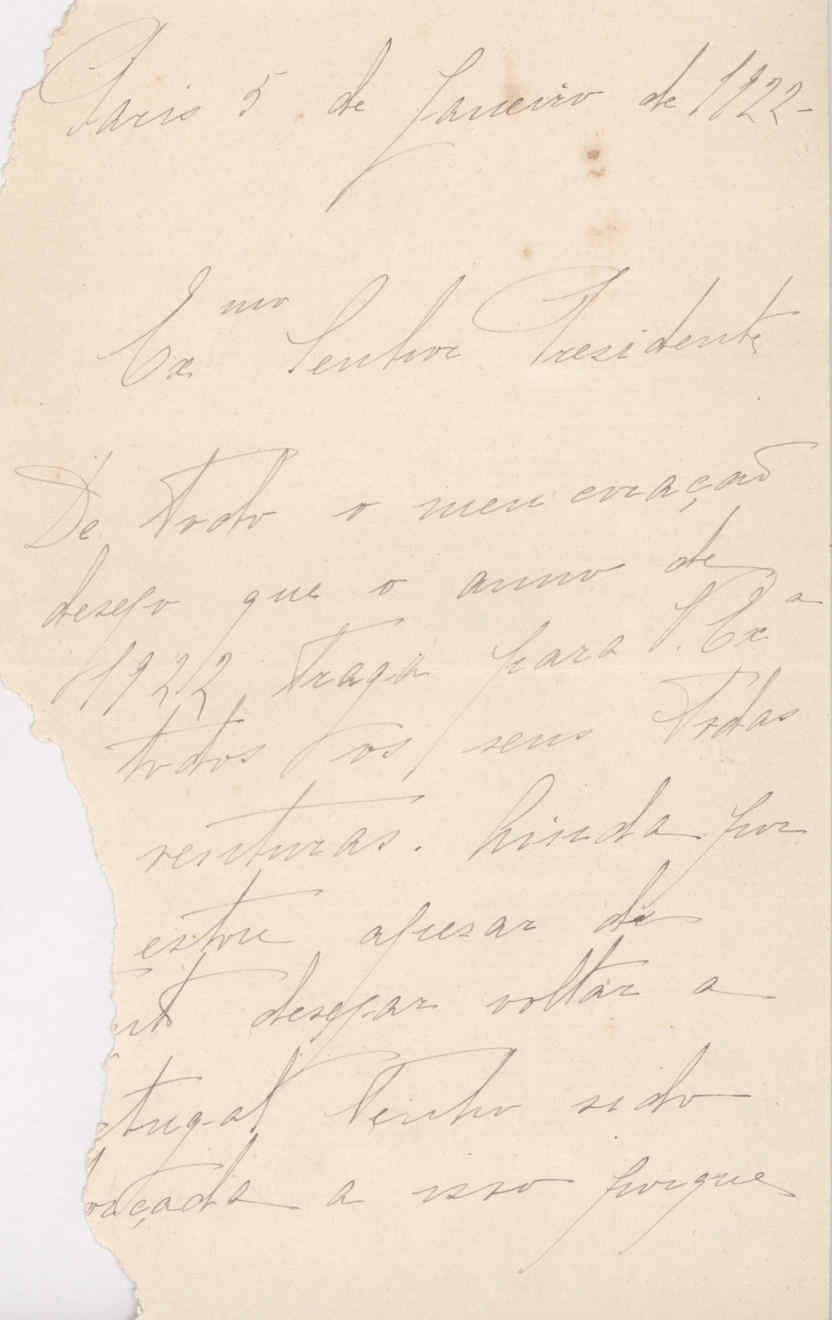 Paris 5 de Janeiro de 1922-
Exmo Senhor Presidente
De todo o meu coração
desejo que o anno de
1922 traga para V. Exª
todos os seus todas
venturas. Ainda por
estou apesar de
desejar voltar a
tugal Tenho sido
orçada a isso porque